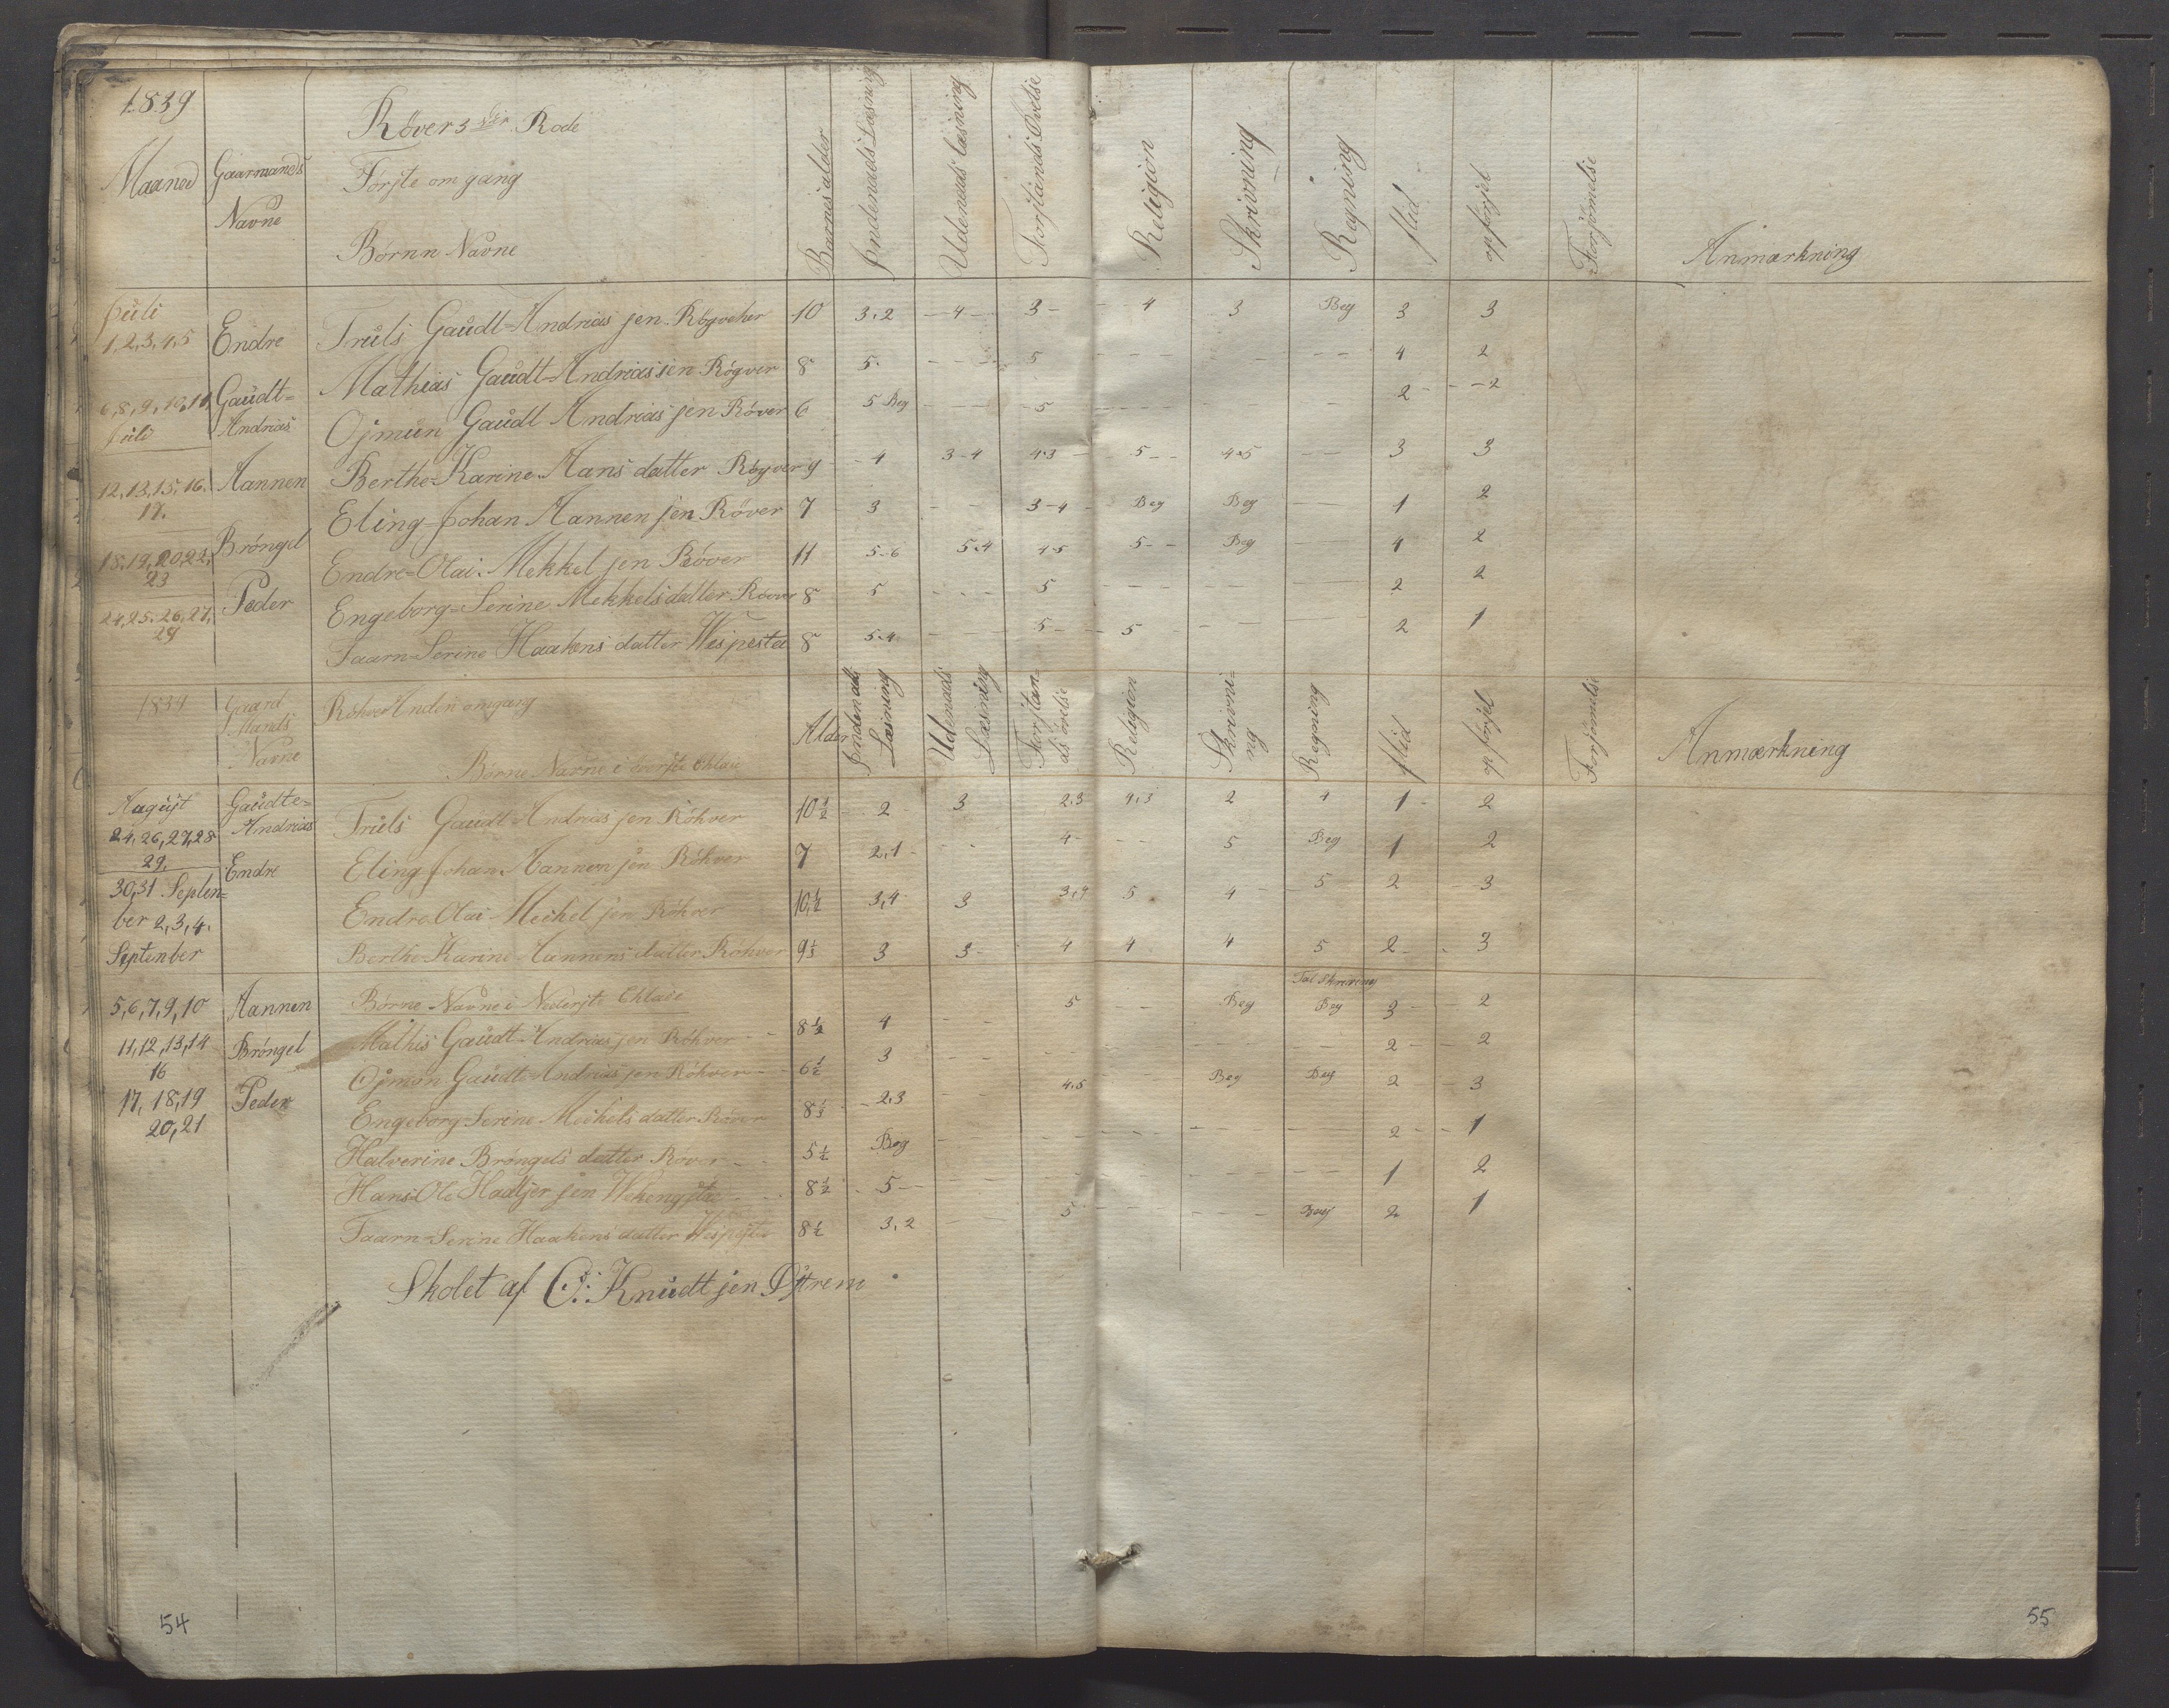 1839
Røver 3die Rode
Maaned Gaarmands Navne
Førſte om gang
Børnn Navne
Barnes alder
Indenads Læsning
Udenads læsning
Forſtands Øvelse
Religion
Skrivning
Regning
flid
opførſel
Forſømelse
Anmærkning
Juli
1,2,3,4,5 Endre Trüls Gaüdt-Andrias ſen 10 3,2 4 3 4 3 Beg 3 3
Mathias Gaüdt-Andriasſen Røgver 8 5 5 4 2
6,8,9,10,11 Juli Gaüdt-Andrias
Ojmün Gaüdt Andrias ſen Røver 6 5 Beg 5 2 2
12,13,15,16. 17. Aannen Berthe-Karine Aans datter Røgver 9 4 3-4 4-3 5 4-5 3 3
Eling-Johan Aannen ſen Røver 7 3 3-4 Beg Beg 1 2
18,19,20,22, 23 Brøngel Endre-Olai Mekkel ſen Røver 11 5-6 5-4 4-5 5 Beg 4 2
24,25,26,27, 29 Peder Engeborg-Serine Mekkels datter Røver 8 5 5 2 2
Taarn-Serine Haakens datter 8 5-4 5 5 2 1
1839 Gaard Mands Navne Røhver Anden omgang
Børne Navne i Øverſte Chlase
Alder
Indenads Læsning
Udenads Læsning
Forſtands øvelse
Religion
Skrivning
Regning
flid
opførſel
Forſømelse
Anmærkning
Aaguſt 24,26,27,28 29. Gaüdte-Andrias Trüls Gaüdt-Andrias ſen Røhver 10½ 2 3 2,3 4,3 2 4 1 2
Endre Eling Johan Aannen ſen Røhver 7 2,1 4 5 Beg 1 2
30,31 Septen-
ber 2,3,4. Endre Olai-Meikel ſen Røhver 10½ 3,4 3 3,4 5 4 5 2 3
September Berthe-Karine Aannens datter Røhver 9½ 3 3 4 4 4 5 2 3
5,6,7,9,10 Aannen Børne-Navne i Nederſte Chlase Tal Skrivning
11,12,13,14 16 Brøngel Mathis Gaüdt-Andrias ſen Røhver 8½ 4 5 Beg Beg 3 2
Ojmon Gaüdt-Andrias ſen Røhver 6½ 3 2 2
17, 18,19 20,21 Peder Engeborg-Serine Meikels datter Røver 8½ 2,3 4,5 Beg Beg 2 3
Halverine Brøngels datter Røver 5½ Beg 2 1
Hans-Ole 8½ 5 1 2
Taarn-Serine Haakens datter 8½ 3,2 5 Beg 2 1
Skolet af O: Knüdt ſen Øſtrem
54
55